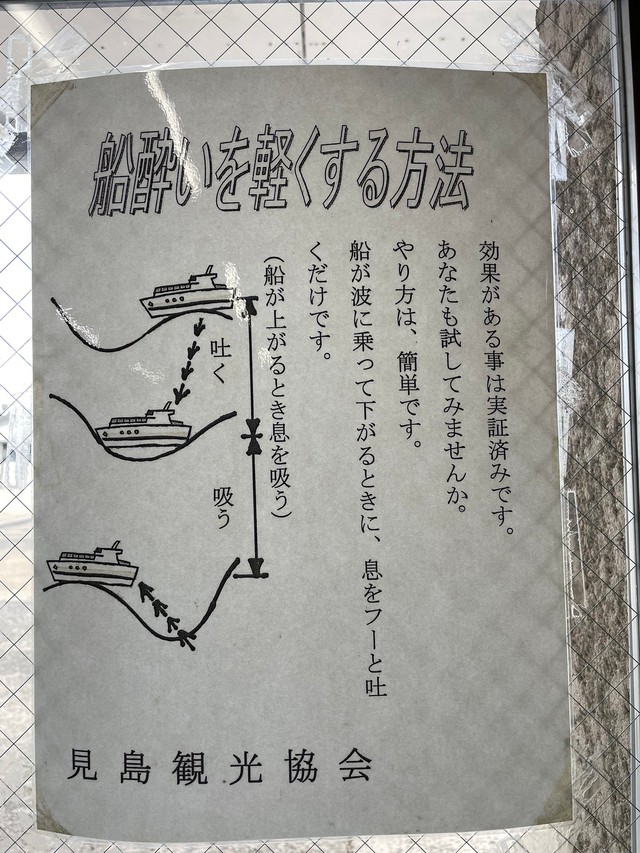 船酔いを軽くする方法
効果がある事は実証済みです。
あなたも試してみませんか。
やり方は、簡単です。
船が波に乗って下がるときに、息をフーと吐
くだけです。
(船が上がるとき息を吸う)
吐く
吸う
見島観光協会